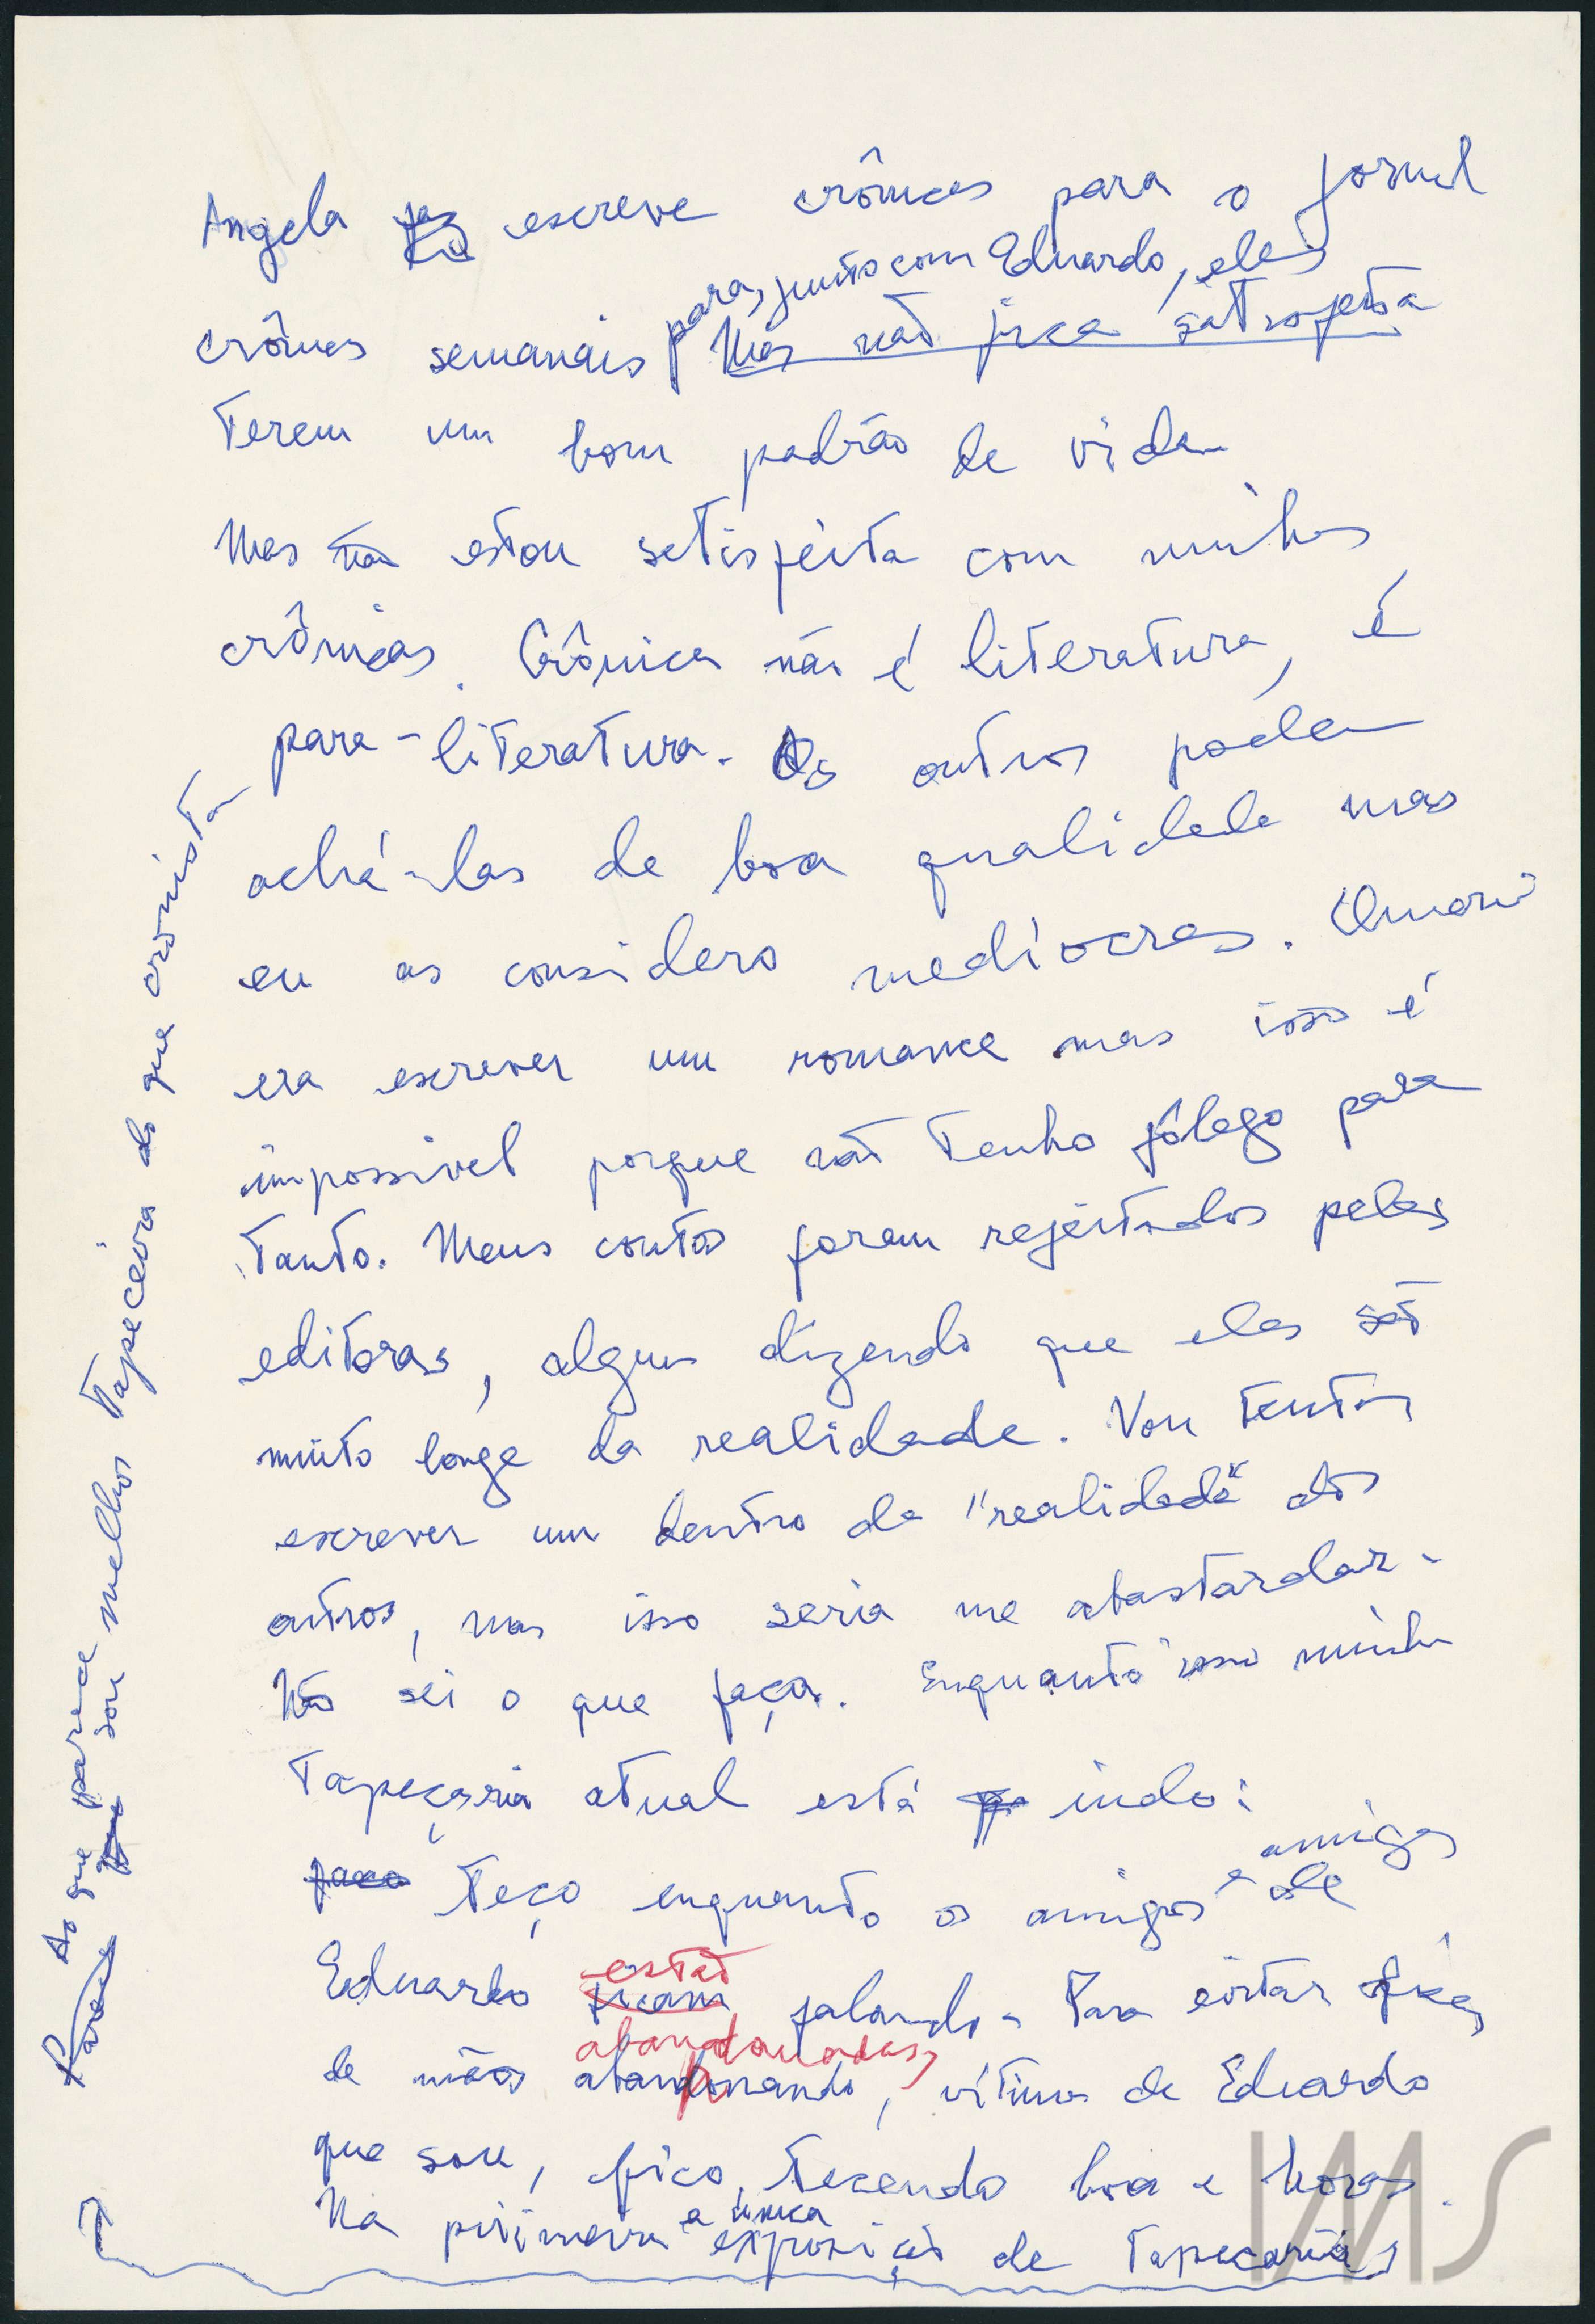 Angela faz escreve crônicas para o Jornal
para, junto com Eduardo, eles
crônicas semanais Mas não fica satisfeita
terem um bom padrão de vida
Mas não estou satisfeita com minhas
crônicas. Crônica não é literatura, é
para-literatura. Os outros podem
achá-las de boa qualidade mas
eu as considero medíocres. Queria
era escrever um romance mas isso é
impossível porque não tenho fôlego para
tanto. Meus contos foram rejeitados pelas
editoras, algumas dizendo que eles são
muito longe da realidade. Vou tentar
escrever um dentro da "realidade" dos
outros, mas isso seria me abastardar.
Não sei o que faça. Enquanto isso minha
tapeçaria atual está indo:
faço teço enquanto os amigos e amigas de
Eduardo ficam estão falando. Para evitar ficar
de mãos abanando abandonadas, vítima de Eduardo
que sou, fico tecendo hora e horas.
Na primavera a única exposição de tapeçarias
Parece Ao que parece sou melhor tapeceira do que cronista
IMS